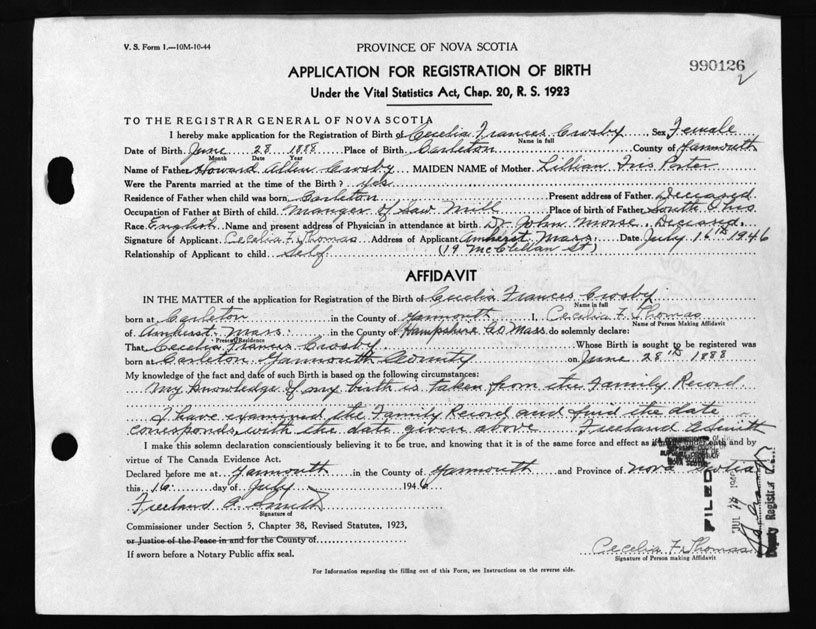 V. S. Form 1.—10M-10-44
PROVINCE OF NOVA SCOTIA
990126
2
APPLICATION FOR REGISTRATION OF BIRTH
Under the Vital Statistics Act, Chap. 20, R. S. 1923
TO THE REGISTRAR GENERAL OF NOVA SCOTIA
I hereby make application for the Registration of Birth of Cecelia Frances Crosby, Sex Female
Name in full
Date of Birth June 28 1888 Place of Birth Carleton County of Yarmouth
Month Date Year
Name of Father Howard Allen Crosby MAIDEN NAME of Mother Lillian Iris Porter
Were the Parents married at the time of the Birth? yes
Residence of Father when child was born Carleton Present address of Father Deceased
Occupation of Father at Birth of child Manger of Saw Mill Place of birth of Father South Ohio
Race English Name and present address of Physician in attendance at birth Dr John Morse, Deceased
Signature of Applicant Cecelia F. Thomas Address of Applicant Amherst, Mass. Date July 16th 1946
Relationship of Applicant to child Self (19 McClellan St)
AFFIDAVIT
IN THE MATTER of the application for Registration of the Birth of Cecelia Frances Crosby
Name in full
born at Carleton in the County of Yarmouth I, Cecelia F. Thomas
Name of Person Making Affidavit
of Amherst, Mass. in the County of Hampshire Co Mass. do solemnly declare:
Present Residence
That Cecelia Frances Crosby Whose Birth is sought to be registered was
born at Carleton Yarmouth County on June 28th 1888
My knowledge of the fact and date of such Birth is based on the following circumstances:
My knowledge of my birth is taken from the Family Record
I have examined the Family Record and find the date
corresponds with the date given above Freeland A Smith
I make this solemn declaration conscientiously believing it to be true, and knowing that it is of the same force and effect as if made under oath and by
virtue of The Canada Evidence Act.
Declared before me at Yarmouth in the County of Yarmouth and Province of Nova Scotia
this 16 day of July 1946
Freeland A. Smith
Signature of
Commissioner under Section 5, Chapter 38, Revised Statutes, 1923,
or Justice of the Peace in and for the County of
If sworn before a Notary Public affix seal.
FILED
JUL
Deputy Registrar
Cecelia F. Thomas
Signature of Person making Affidavit
For Information regarding the filling out of this Form, see Instructions on the reverse side.